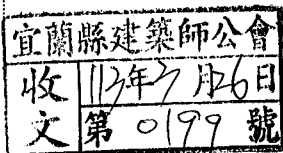 宜蘭縣建築師公會
收文
113年3月26日
第0199號